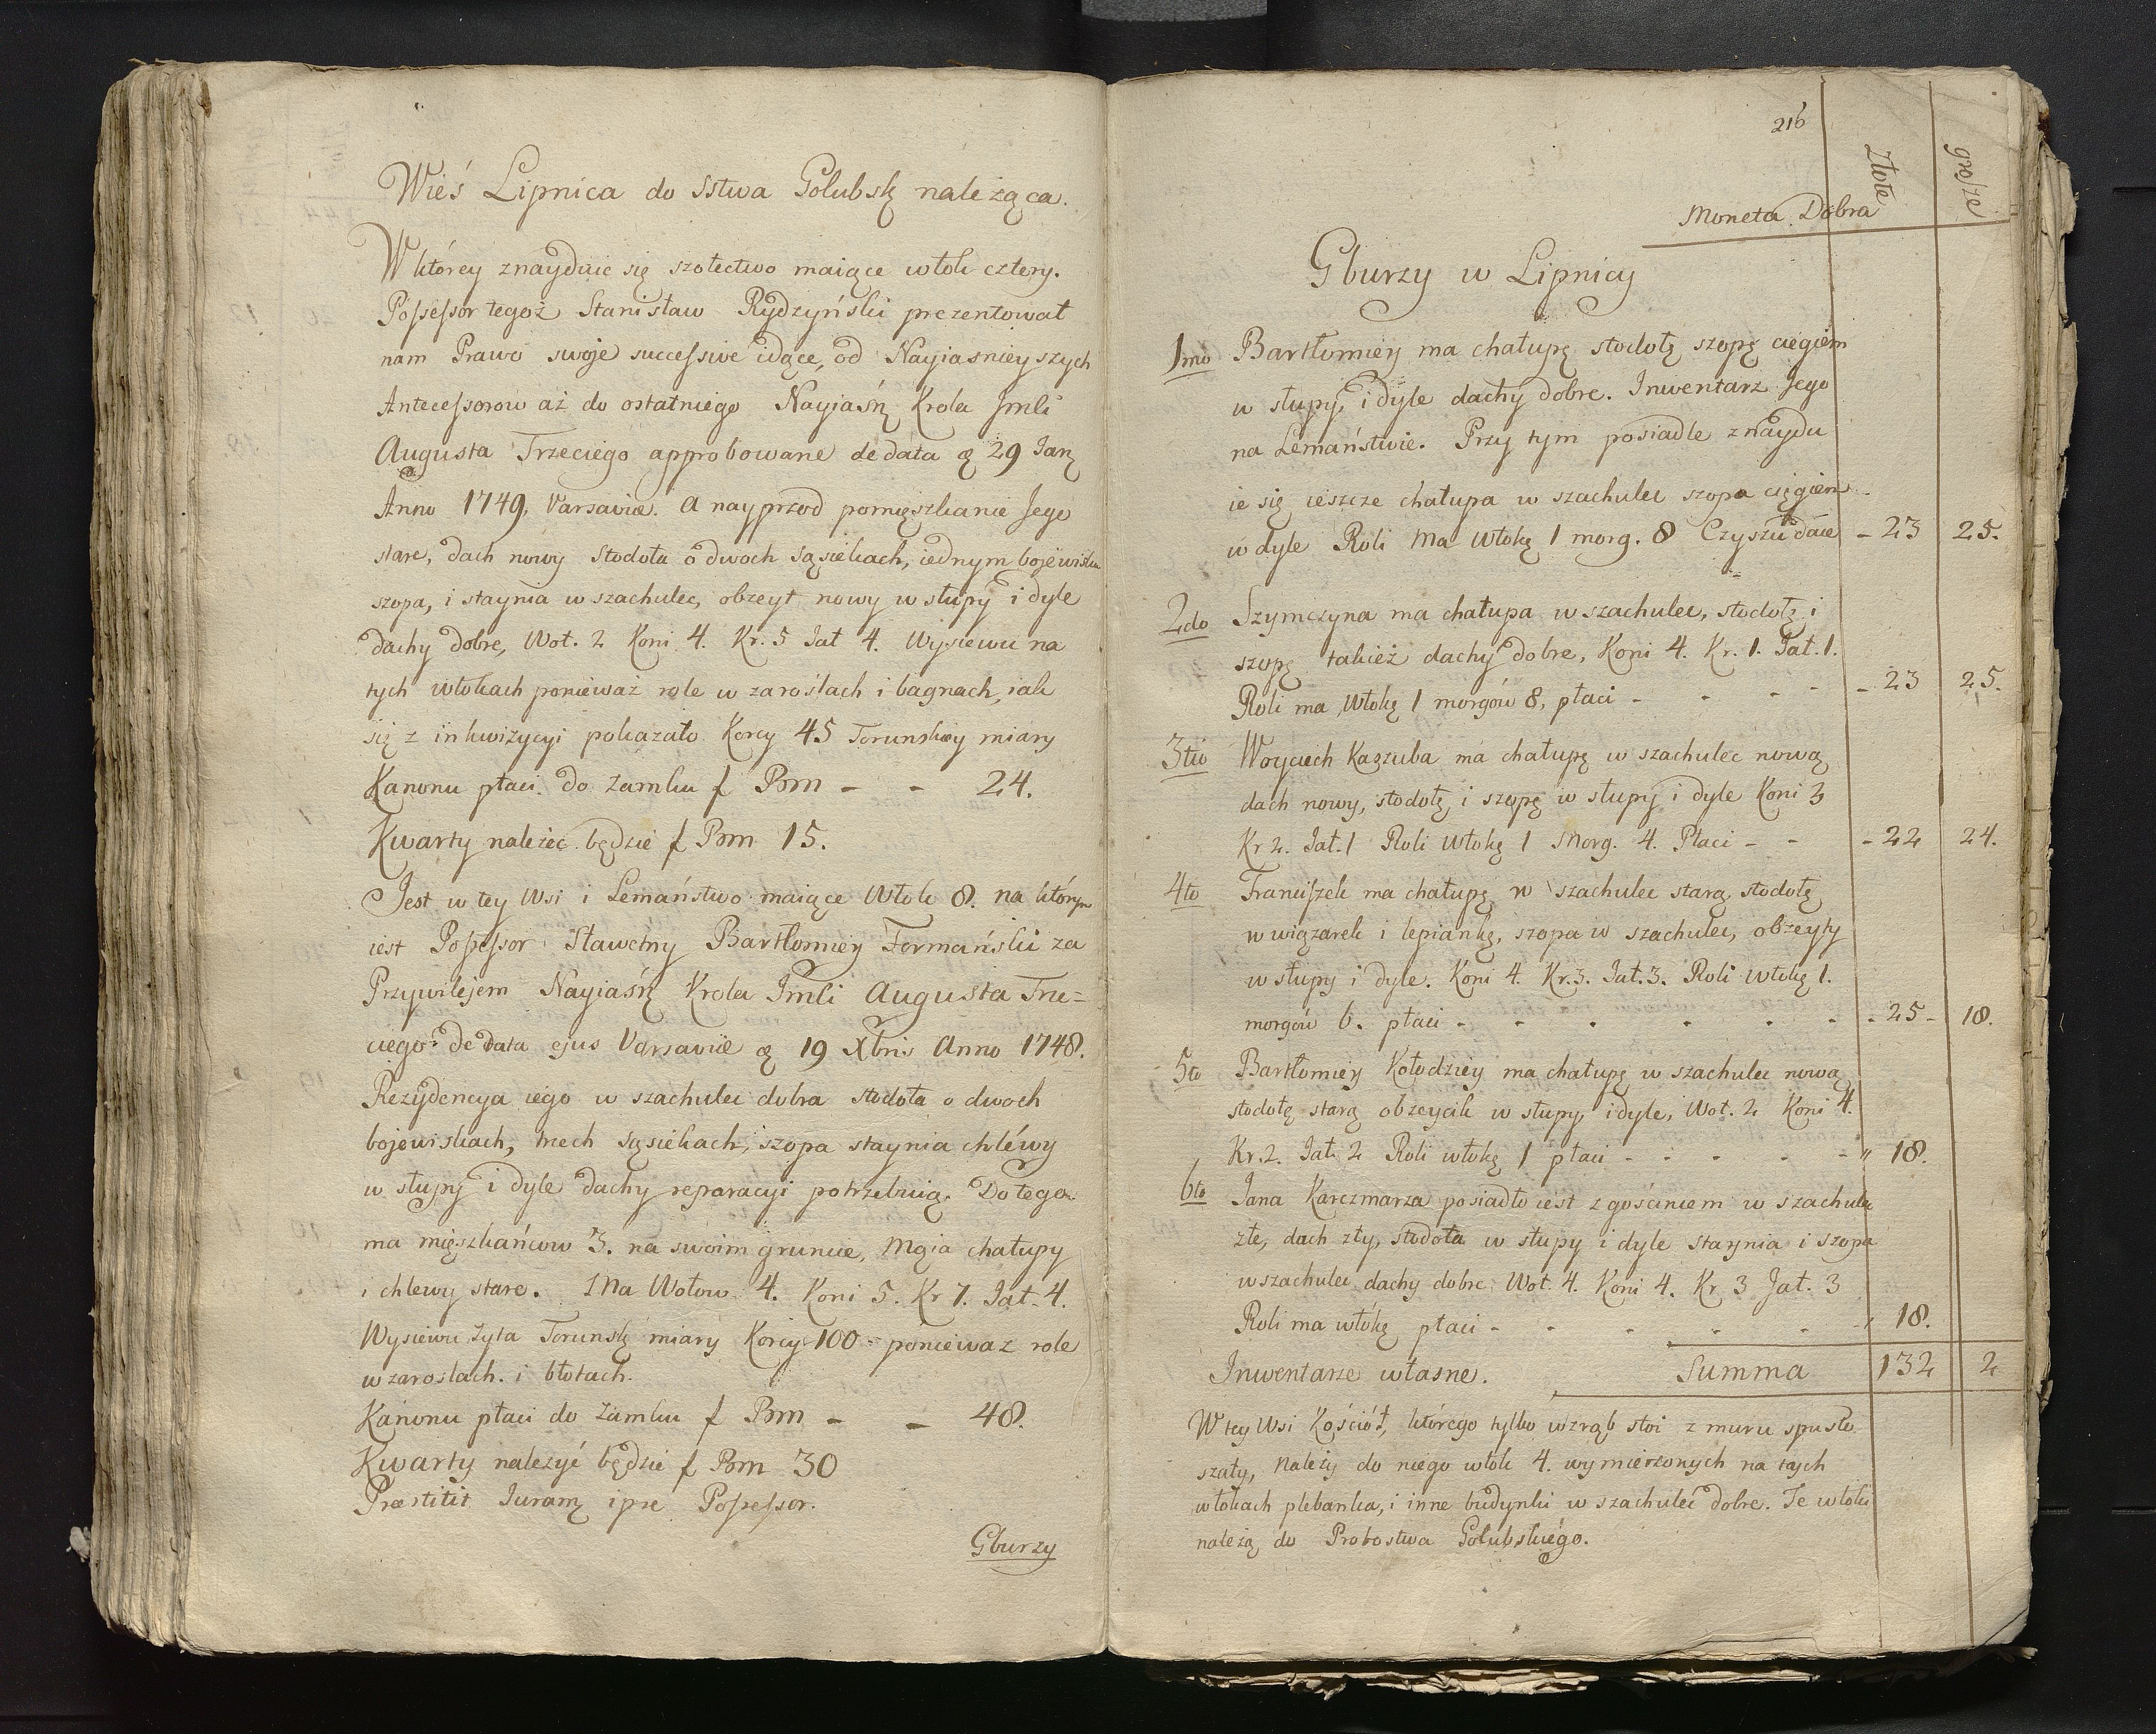 Wieś Lipnica do Sstwa Golubsk należąca.
W ktorey znayduie się szołectwo maiące włok cztery.
Possessor tegoż Stanisław Rydzyński prezentował
nam Prawo swoje successive idące, od Nayiasnieyszych
Antecessorow aż do ostatniego Nayiaśn Krola Jmli
Augusta Trzeciego approbowane de data 29 Jan
Anno 1749. Varsaviæ. A nayprzod pomięszkanie Jego
stare, dach nowy Stodoła o dwoch sąsiekach, iednym bojewisku
szopa, i staynia w szachulec, obzeyt nowy w słupy i dyle
dachy dobre, Woł. 2 Koni 4. Kr. 5 Jał 4. Wysiewu na
tych włokach ponieważ role w zaroślach i bagnach, iak
się z inkwizycyi pokazało Korcy 45 Torunskiey miary
Kanonu płaci do Zamku f Prm - - 24.
Kwarty należeć będzie f Prm 15.
Jest w tey Wsi i Lemaństwo maiące Włok 8. na którym
iest Possessor Sławetny Bartłomiey Formański za
Przywilejem Nayiaśn Krola Jmli Augusta Trze=
ciego de data ejus Varsaviæ 19 Xbris Anno 1748.
Rezydencya iego w szachulec dobra stodoła o dwoch
bojewiskach, trzech sąsiekach, szopa staynia chléwy
w słupy i dyle dachy reparacyi potrzebuią. Do tego
ma mięszkańcow 3. na swoim gruncie, Maia chałupy
i chlewy stare. Ma Wołow 4. Koni 5. Kr 7. Jał. 4.
Wysiewu żyta Torunsk miary Korcy 100 - poniewaz role
w zaroslach. i błotach.
Kanonu płaci do Zamku f Prm - - 48.
Kwarty należyć będzie f Prm 30
Præstitit Juram ipse Possessor.
Gburzy
216
Złote
grosze
Moneta Dobra
Gburzy w Lipnicy
1mo Bartłomiey ma chałupę stodołę szopę ciegiem
w słupy, i dyle dachy dobre. Inwentarz Jego
na Lemaństwie. Przy tym posiadle znaydu
ie się ieszcze chałupa w szachulec szopa ciągiem
w dyle Roli Ma włokę 1 morg. 8 Czyszu daie - 23 25.
2do Szymczyna ma chałupa w szachulec, stodołę i
szopę takież dachy dobre, Koni 4. Kr. 1. Jał. 1.
Roli ma Włokę 1 morgów 8, płaci - - - - - 23 25.
3tio Woyciech Kaszuba ma chałupę w szachulec nową
dach nowy, stodołę i szopę w słupy i dyle Koni 3
Kr 2. Jał. 1 Roli Włokę 1 Morg. 4. Płaci - - - 22 24.
4to Franciszek ma chałupę w szachulec starą stodołę
w wiązarek i lepiankę, szopa w szachulec, obzeyty
w słupy i dyle. Koni 4. Kr. 3. Jał. 3. Roli Włokę 1.
morgów 6. płaci - - - - - - - 25 - 18.
5to Bartłomiey Kołodziey ma chałupę w szachulec nową
stodołę starą obzeycik w słupy i dyle, Woł. 2 Koni 4.
Kr. 2. Jał. 2 Roli włokę 1 płaci - - - - - " 18.
6to Jana Karczmarza posiadło iest z gościncem w szachulec
złe, dach zły, stodoła w słupy i dyle staynia i szopa
w szachulec dachy dobre Woł. 4. Koni 4. Kr 3 Jał. 3
Roli ma włókę płaci - - - - - - 18.
Inwentarze własne. Summa 132 2
W tey Wsi Kościół, którego tylko wzrąb stoi z muru spusto
szały, Należy do niego włok 4. wymierzonych na tych
włokach plebanka, i inne budynki w szachulec dobre. Te włoki
należą do Probostwa Golubskiego.